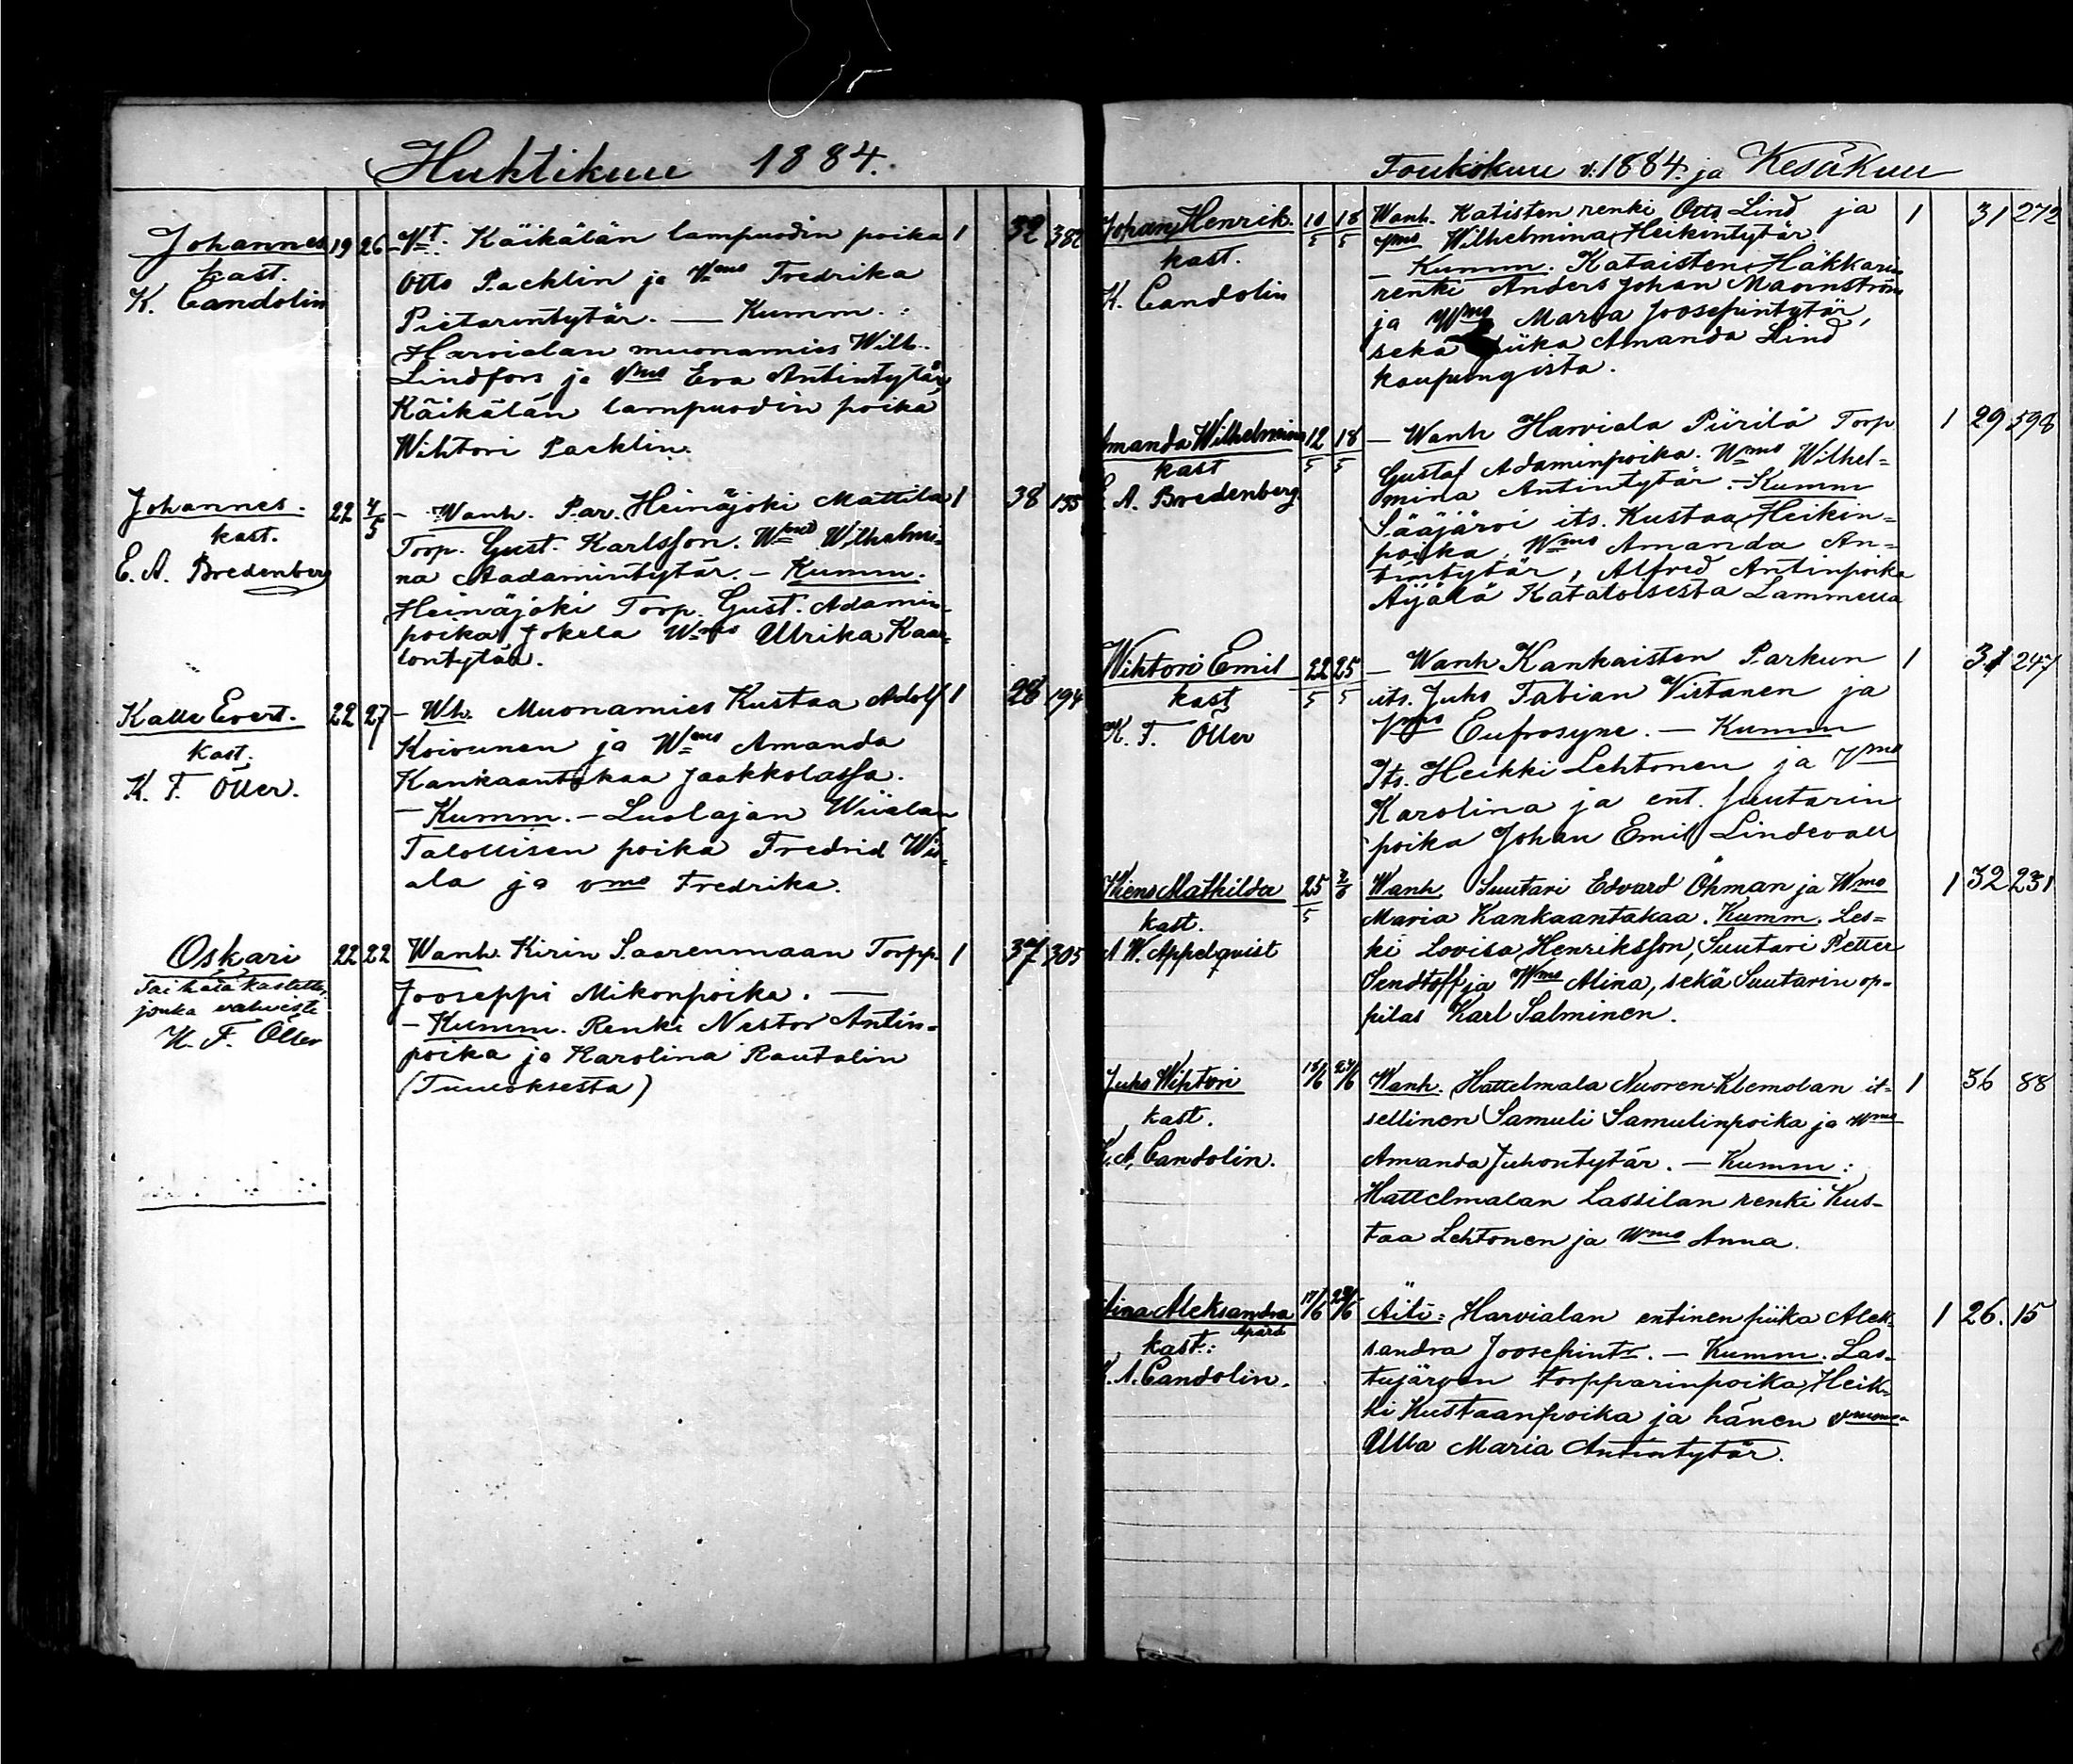 Huhtikuu 1884.
Johannes 19 26 Vt. Käikälän lampuodin poika 1 32 382
kast. Otto Packlin ja Vmo Fredrika
K. Candolin Pietarintytär. — Kumm. :
Harvialan muonamies Wilh.
Lindfors ja Vmo Eva Antintytär
Käikälän lampuodin poika
Wihtori Packlin.
Johannes. 22 4/5 - Wanh. Par. Heinäjoki Mattila 1 38 135
kast. Torp. Gust. Karlsson. Wmo Wilhelmi-
E. A. Bredenberg na Aadamintytär. - Kumm.
Heinäjoki Torp. Gust. Adamin-
poika Jokela Wmo Ulrika Kaar-
lontytär.
Kalle Evert. 22 27 - Wh. Muonamies Kustaa Adolf 1 28 194
kast. Koivunen ja Wmo Amanda
K. F. Öller. Kankaantakaa Jaakkolassa.
- Kumm. - Luolajan Wiialan
Talollisen poika Fredrid Wii-
ala ja vmo Fredrika.
Oskari 22 22 Wanh. Kirin Saarenmaan Torpp. 1 37 305
Jooseppi Mikonpoika. —
jonka vahvisti - Kumm. Renki Nestor Antin-
K. F. Öller poika ja Karolina Rautalin
(Tuuloksesta)
Toukokuu v. 1884. ja Kesäkuu
Johan Henrik. 10/5 18/5 Wanh. Katisten renki Otto Lind ja 1 31 272
kast. Vmo Wilhelmina Heikintytär
K. Candolin - Kumm. Kataisten Häkkarin
renki Anders Johan Mannström
ja Wmo Maria Joosepintytär,
sekä piika Amanda Lind
kaupungista.
Amanda Wilhelmina 12/5 18/5 - Wanh Harviala Piirilä Torp. 1 29 598
kast Gustaf Adaminpoika. Wmo Wilhel-
E. A. Bredenberg mina Antintytär. - Kumm
Sääjärvi its. Kustaa Heikin-
poika, Wmo Amanda An-
tintytär, Alfred Antinpoika
Äijälä Kataloisesta Lammella
Wihtori Emil 22/5 25/5 - Wanh Kankaisten Parkun 1 31 247
kast its. Juho Fabian Virtanen ja
K. F. Öller Vmo Eufrosyne. - Kumm
Its. Heikki Lehtonen ja Vmo
Karolina ja ent. Suutarin
poika Johan Emil Lindevall
Mathilda 25/5 2/6 Wanh. Suutari Edvard Öhman ja Wmo 1 32 231
kast. Maria Kankaantakaa. Kumm. Les-
A W. Appelqvist ki Lovisa Henriksson, Suutari Petter
Sendtoff ja Wmo Alina, sekä Suutarin op-
pilas Karl Salminen.
Juho Wihtori 15/6 24/6 Wanh. Hattelmala Nuoren-Klemolan it- 1 36 88
kast. sellinen Samuli Samulinpoika ja Wmo
K. A. Candolin. Amanda Juhontytär. - Kumm:
Hattelmalan Lassilan renki Kus-
taa Lehtonen ja Wmo Anna.
Aina Aleksandra 17/6 29/6 Äiti: Harvialan entinen piika Alek- 1 26. 15
Äpärä
kast.: sandra Joosepintr. - Kumm. Las-
K. A. Candolin. tujärven torpparinpoika Heik-
ki Kustaanpoika ja hänen vmonsa
Ulla Maria Antintytär.